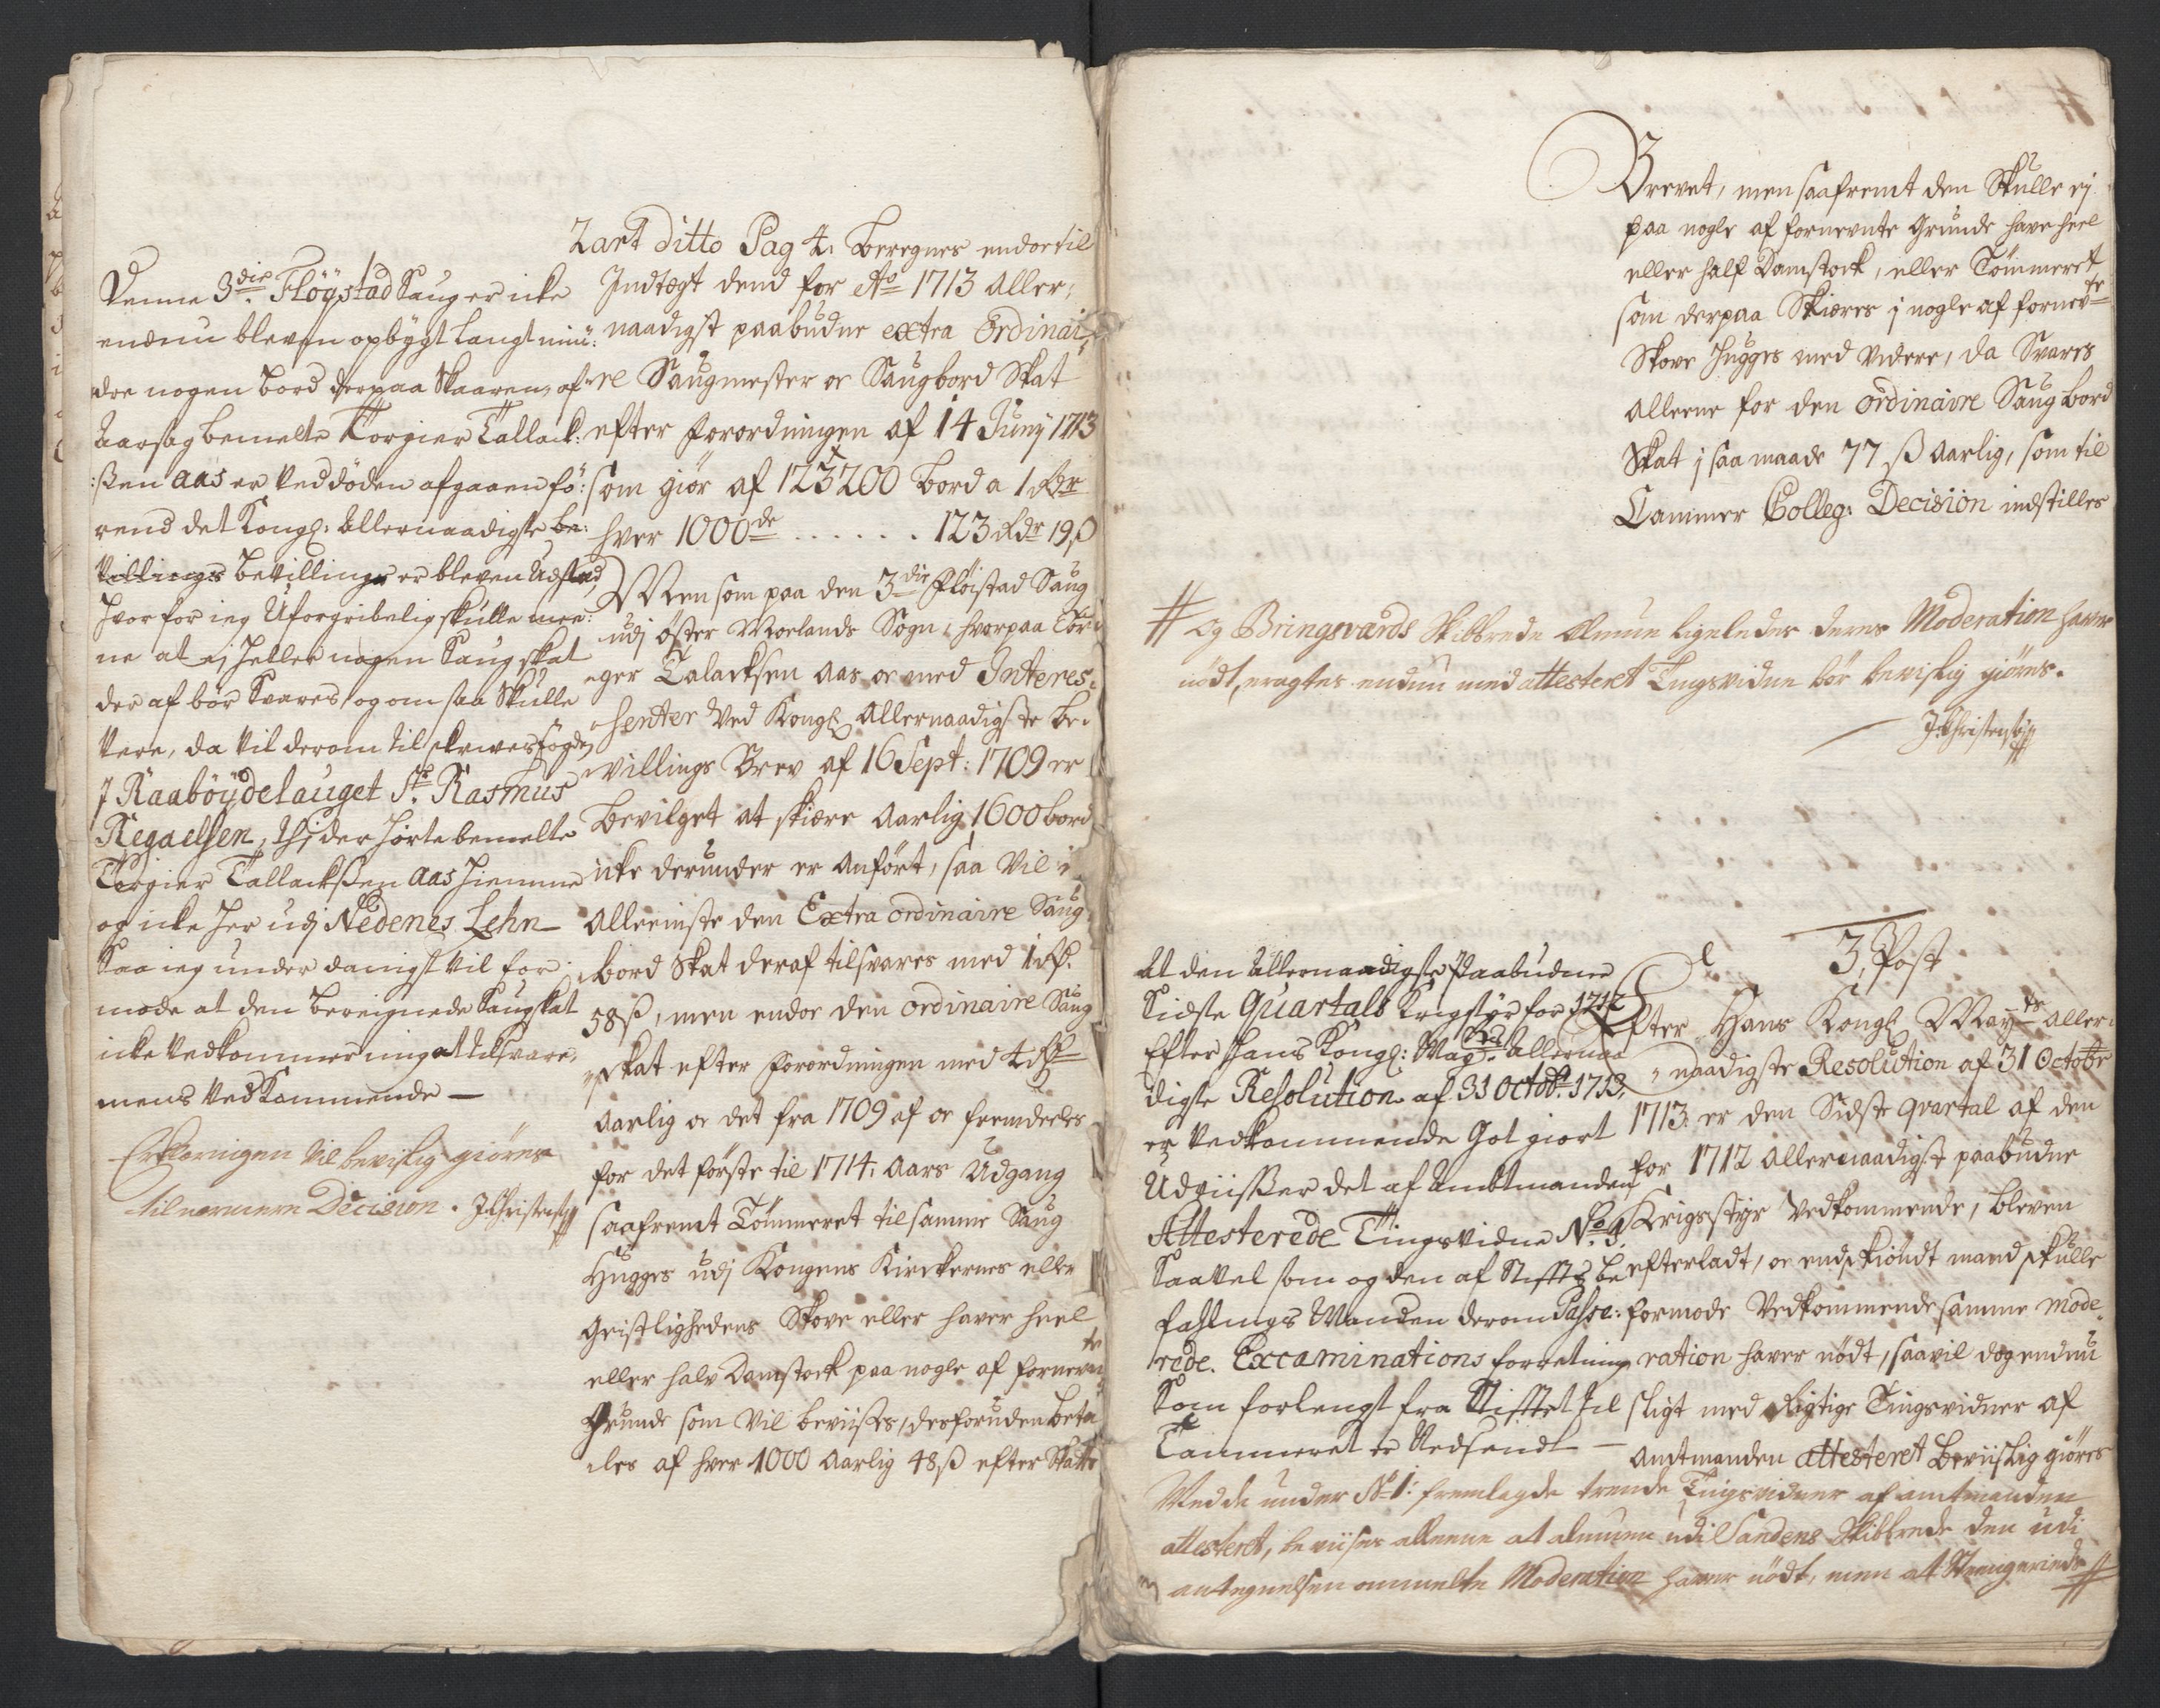 Denne 3die Flöystad Saug er icke
endnu bleven opbÿgt langt min:
dre nogen bord derpaa Skaaren, af
Aarsag bemelte Torgier Tallack:
:ßen Aas er ved döden afgaaen fö:
rend det Kongl: Allernaadigste be:
villings bevillings er bleven Udsted,
hvor for ieg Uforgribelig skulle mee:
ne at ej heller nogen Saugskat
der af bör Svares, og om saa Skulle
være, da vil derom tilskrives fogden
J Raaböÿdelauget Sr. Rasmus
Regaelsen, thi der hörte bemelte
Torgier Tallackßen Aas hiemme
og icke her udj Nedenes Lehn
Saa ieg under danigst vil for
mode at den bereignede Saugskat
icke vedkommer mig at tilsvare,
mens vedkommende —
Erklæringen vil bevislig giöres
til nærmere Decision. J Christens
2art ditto Pag 4. beregnes endertil
Jndtægt dend for Ao 1713 Aller,
naadigst paabudne extra Ordinai,
re Saugmester oc Saugbord Skat
efter forordningen af 14 Junÿ 1713
som giör af 123200 bord a 1 Rdr
hver 1000de . . . . . . 123 Rdr 19ß
Men som paa den 3die Flöistad Saug
udj Öster Moelands Sogn, hvorpaa Tör
ger Talacksen Aas oc med Interes,
senter ved Kongl Allernaadigste be,
villings Brev af 16 Sept: 1709 er
bevilget at skiære Aarlig 1600 bord
icke derunder er Anfört, saa vil i
Alleeniste den Extra ordinaire Saug
bord Skat deraf tilsvares med 1 Rd.
58ß, men endoc den ordinaire Saug
skat efter forordningen med 4 Rd
Aarlig oc det fra 1709 af oc fremdeeles
for det förste til 1714, Aars Udgang
saafremt Tömmeret til samme Saug
Hugges udj Kongens Kirckernes eller
Geistlighedens Skove eller haver heel
eller halv Damstock paa nogle af fornevnte
Grunde som vil beviises, desforuden beta
les af hver 1000 Aarlig 48ß efter Skatte
Brevet, men saafremt den Skulle ej
paa nogle af fornevnte Grunde have heel
eller half Damstock, eller Tömmeret
som derpaa Skiæres j nogle af fornevte
Skove hugges med videre, da Svares
Alleene for den ordinaire Saug bord
Skat j saa maade 77 ß Aarlig, som til
Cammer Colleg: Decision indstilles
# og Bringsværds Skibbrede Almue ligeledes deres Moderation haver
nödt, eragtes endnu med attesteret Tingsvidne bör bevislig giöres.
J Christens
At den Allernaadigste Paabudne
Sidste Quartals Krigstÿr for 1712
Efter Hans Kongl: Maÿts: Allernaa
digste Resolution af 31 Octobr: 1713,
er vedkommende Got giort
Udviisser det af Ambtmanden
Attesterede Tingsvidne No. 1.
Saavel som og den af Stiffts be
fahlings Manden derom Passe:
rede Excaminations forretning
Som forlengst fra Stifftet til
Cammeret er Nedsendt —
3, Post
Efter Hans Kongl Mayts aller
naadigste Resolution af 31 Octobr
1713. er den Sidste qvartal af den
for 1712 Allernaadigst paabudne
Krigsstÿr Vedkommende, bleven
efterladt, oc endskiöndt mand skulle
formode Vedkommende samme mode,
ration haver nödt, saa vil dog endnu
sligt med Rigtige Tingsvidner af
Amtmanden attesteret beviislig giöres
Med de under No 1: fremlagde trende Tingsvidner af amtmanden
attesteret, beviises alleene at almuen udi Sandens Skibbrede den udi
antegnelsen ommelte Moderation haver nödt, men at #